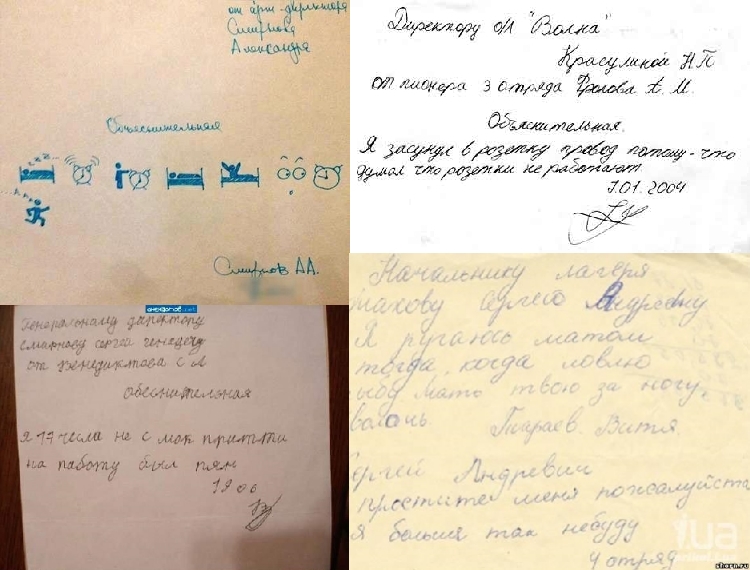 от арт-директора
Смирнова
Александра
Объяснительная
Смирнов АА.
Директору ОЛ "Волна"
Красулиной Н П
от пионера 3 отряда Фролова А. М.
Объяснительная.
Я засунул в розетку провод потому-что
думал что розетки не работают
7.07. 2004
Генеральному директору
от Бенедиктова С А
Обеснительная
я 17 чесла не с мок притти
на работу был пян
18 06
Начальнику лагеря
Я ругаюсь матом
тогда, когда ловлю
ыбу мать твою за ногу,
волочь. Витя.
ергей Андревич
простите меня пожалуйста
я больше так небуду
4 отряд
1ua
shorn.ru